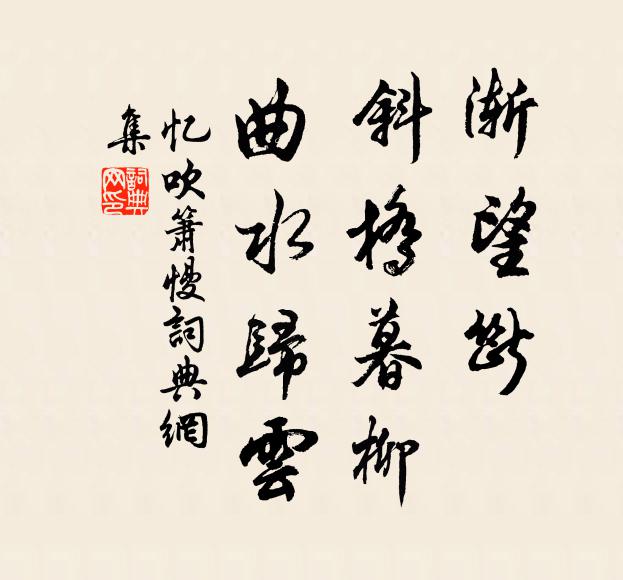 漸望斷
斜橋暮柳
曲水歸雲
忆吹簫慢詞典網
集
詞典
网印